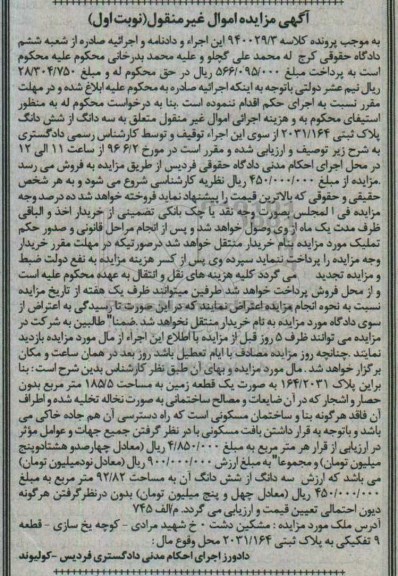 آگهی مزایده اموال غیر منقول(نوبت اول)
به موجب پرونده کلاسه ۹۴۰۰۲۹/۳ این اجراء و دادنامه و اجرائیه صادره از شعبه ششم
دادگاه حقوقی کرج له محمد علی گچلو و علیه محمد بدرخانی محکوم علیه محکوم
است به پرداخت مبلغ ۵۶۶/۰۹۵/۰۰۰ ریال در حق محکوم له و مبلغ ۲۸/۳۰۴/۷۵۰
ریال نیم عشر دولتی باتوجه به اینکه اجرائیه صادره به محکوم علیه ابلاغ شده و در مهلت
مقرر نسبت به اجرای حکم اقدام ننموده است .بنا به درخواست محکوم له به منظور
استیفای محکوم به و هزینه اجرائی اموال غیر منقول متعلق به سه دانگ از شش دانگ
پلاک ثبتی ۲۰۳۱/۱۶۴ از سوی این اجراء توقیف و توسط کارشناس رسمی دادگستری
به شرح زیر توصیف و ارزیابی شده و مقرر است در مورخ ۹۶/۶/۲ از ساعت ۱۱ الی ۱۲
در محل اجرای احکام مدنی دادگاه حقوقی فردیس از طریق مزایده به فروش می رسد
.مزایده از مبلغ ۴۵۰/۰۰۰/۰۰۰ ریال نظریه کارشناسی شروع می شود و به هر شخص
حقیقی و حقوقی که بالاترین قیمت را پیشنهاد نماید فروخته خواهد شد ده درصد وجه
مزایده فی ا لمجلس بصورت وجه نقد یا چک بانکی تضمینی از خریدار اخذ و الباقی
ظرف مدت یک ماه از وی وصول خواهد شد و پس از انجام مراحل قانونی و صدور حکم
تملیک مورد مزایده بنام خریدار منتقل خواهد شد درصورتیکه در مهلت مقرر خریدار
وجه مزایده را پرداخت ننماید سپرده وی پس از کسر هزینه مزایده به نفع دولت ضبط
و مزایده تجدید می گردد کلیه هزینه های نقل و انتقال به عهده محکوم علیه است
و از محل فروش پرداخت خواهد شد طرفین میتوانند ظرف یک هفته از تاریخ مزایده
نسبت به نحوه انجام مزایده اعتراض نمایند که در این صورت تا رسیدگی به اعتراض از
سوی دادگاه مورد مزایده به نام خریدار منتقل نخواهد شد .ضمنا" طالبین به شرکت در
مزایده می توانند ظرف ۵ روز قبل از مزایده با اطلاع این اجراء از مال مورد مزایده بازدید
نمایند .چنانچه روز مزایده مصادف با ایام تعطیل باشد روز بعد در همان ساعت و مکان
برگزار خواهد شد .مال مورد مزایده و بهای آن طبق نظر کارشناس بدین شرح است : بنا
براین پلاک ۱۶۴/۲۰۳۱ به صورت یک قطعه زمین به مساحت ۱۸۵/۵ متر مربع بدون
حصار و اشجار که در آن ضایعات و مصالح ساختمانی به صورت نخاله تخلیه شده و اطراف
آن فاقد هرگونه بنا و ساختمان مسکونی است که راه دسترسی آن هم جاده خاکی می
باشد و باتوجه به قرار داشتن بافت مسکونی با در نظر گرفتن جمیع جهات و عوامل مؤثر
در ارزیابی از قرار هر متر مربع به مبلغ ۴/۸۵۰/۰۰۰ ریال (معادل چهارصدو هشتادوپنج
میلیون تومان) و مجموعا" به مبلغ ارزش ۹۰۰/۰۰۰/۰۰۰ ریال (معادل نودمیلیون تومان)
می باشد که ارزش سه دانگ از شش دانگ آن به مساحت ۹۲/۸۲ متر مربع به مبلغ
۴۵۰/۰۰۰/۰۰۰ ریال (معادل چهل و پنج میلیون تومان) بدون درنظرگرفتن هرگونه
دیون احتمالی تعیین قیمت و ارزیابی می گردد. م/الف ۷۴۵
آدرس ملک مورد مزایده : مشکین دشت - خ شهید مرادی - کوچه یخ سازی - قطعه
۹ تفکیکی به پلاک ثبتی ۲۰۳۱/۱۶۴ محل وقوع مال :
دادورز اجرای احکام مدنی دادگستری فردیس -کولیوند